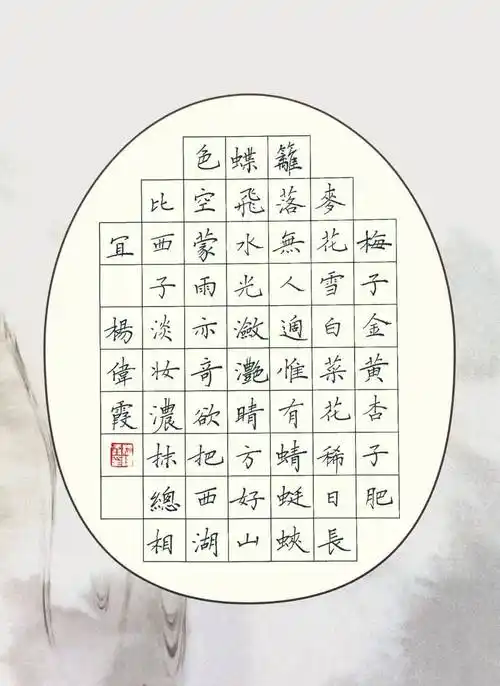 梅子金黃杏子肥
麥花雪白菜花稀日長
籬落無人過惟有蜻蜓蛺
蝶飛水光瀲灧晴方好山
色空蒙雨亦奇欲把西湖
比西子淡妆濃抹總相
宜 楊偉霞